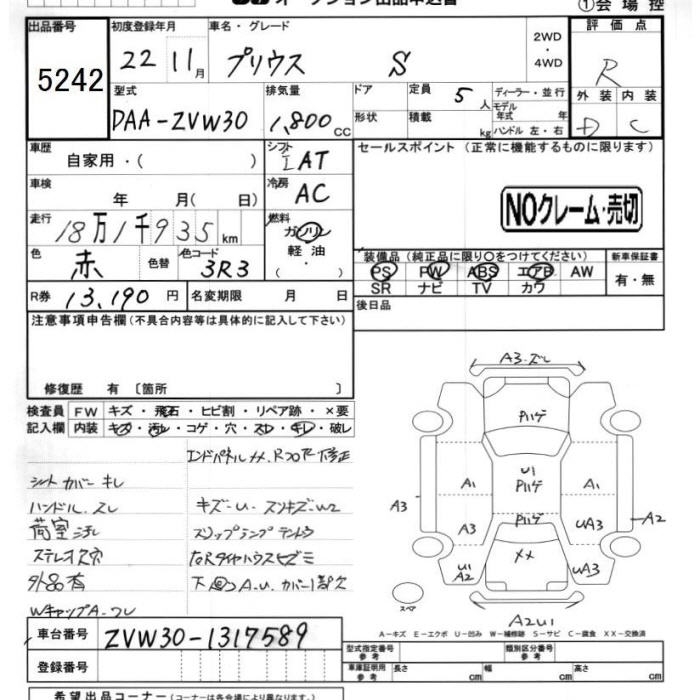 オークション出品申込書
①会場控
出品番号 初度登録年月 車名・グレード 2WD・4WD 評価点
5242 22 11月 プリウス S R
型式 排気量 ドア 定員 5人 ディーラー・並行 外装 内装
DAA-ZVW30 1,800cc 形状 積載 kg モデル年式 年式 ハンドル 左・右 D C
車歴 自家用・( ) シフト IAT セールスポイント (正常に機能するものに限ります)
車検 年 月( 日) 冷房 AC
NOクレーム・売切
走行 18万1千935km 燃料 ガソリン 軽油
色 赤 色替 色コード 3R3
装備品 (純正品に限り○をつけてください) 新車保証書
PS PW ABS エアB AW 有・無
SR ナビ TV カワ
R券 13,190円 名変期限 月 日
後日品
注意事項申告欄 (不具合内容等は具体的に記入して下さい)
修復歴 有 〔箇所 〕
検査員 FW キズ・飛石・ヒビ割・リペア跡・×要
記入欄 内装 キズ・汚レ・コゲ・穴・スレ・キレ・破レ
エンドパネル
シートカバー キレ
ハンドル スレ
キズ-U- スリキズ-W2
荷室 汚レ
ステレオ欠
外品有
A3.ズレ
Pハゲ
U1
Pハゲ
Pハゲ
××
A1
A3
A3
U1
A2
A1
UA3
UA3
A2
A2U1
スペア
A-キズ E-エクボ U-凹み W-補修跡 S-サビ C-腐食 XX-交換済
車台番号 ZVW30-1317589
登録番号
型式指定番号 参考 類別区分番号 参考
車庫証明用 参考 長さ cm 幅 cm 高さ cm
希望出品コーナー (コーナーは各会場により異なります。)